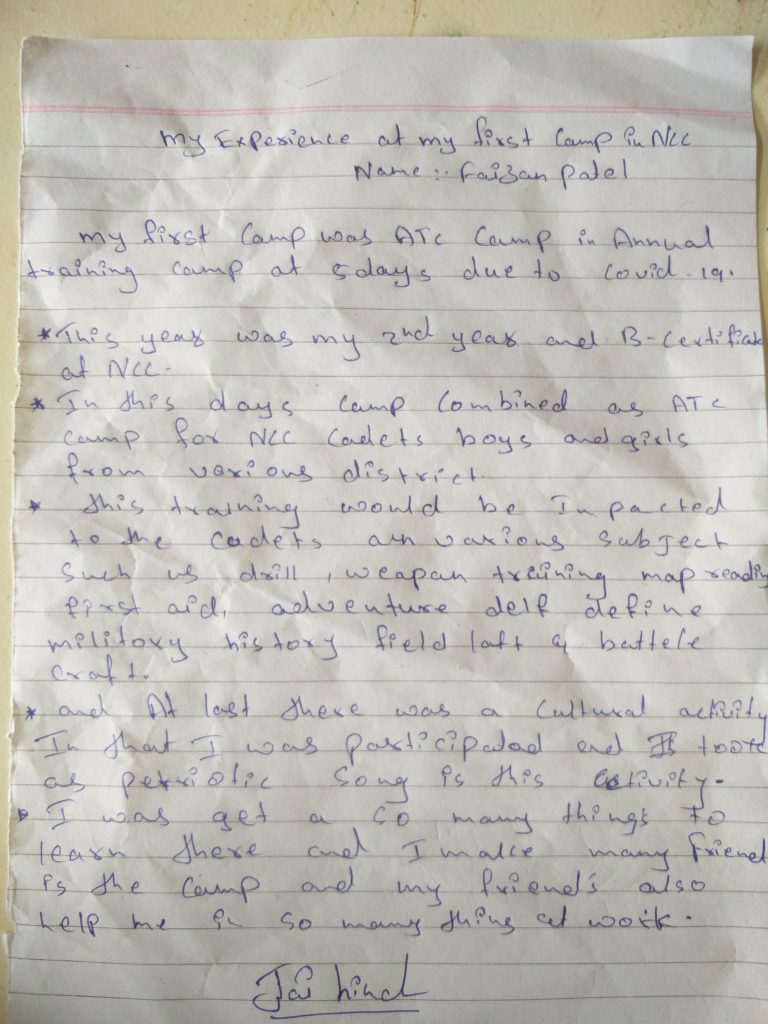 My Experience at my first Camp in NCC
Name :- Faizan patel
my first Camp was ATC Camp in Annual
training camp at 5 days due to Covid-19.
* This year was my 2nd year and B-Certificate
at NCC.
* In this days Camp Combined as ATC
Camp for NCC Cadets boys and girls
from various district.
* this training would be Inpacted
to the Cadets an various Subject
Such us drill, weapan training map reading
first aid, adventure delf define
militory history field laft & battele
craft.
* and At last there was a Cultural activity
In that I was participatad and took
as petriotic Song is this activity.
* I was get a so many things to
learn there and I make many friend
is the Camp and my friend's also
help me in so many thing at work.
Jai hind